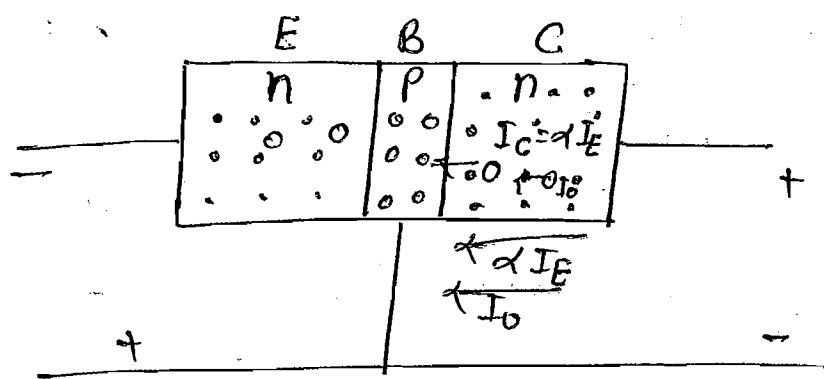 E B C
n P n
I_C = αI_E
I_0
− +
αI_E
I_0
+ −